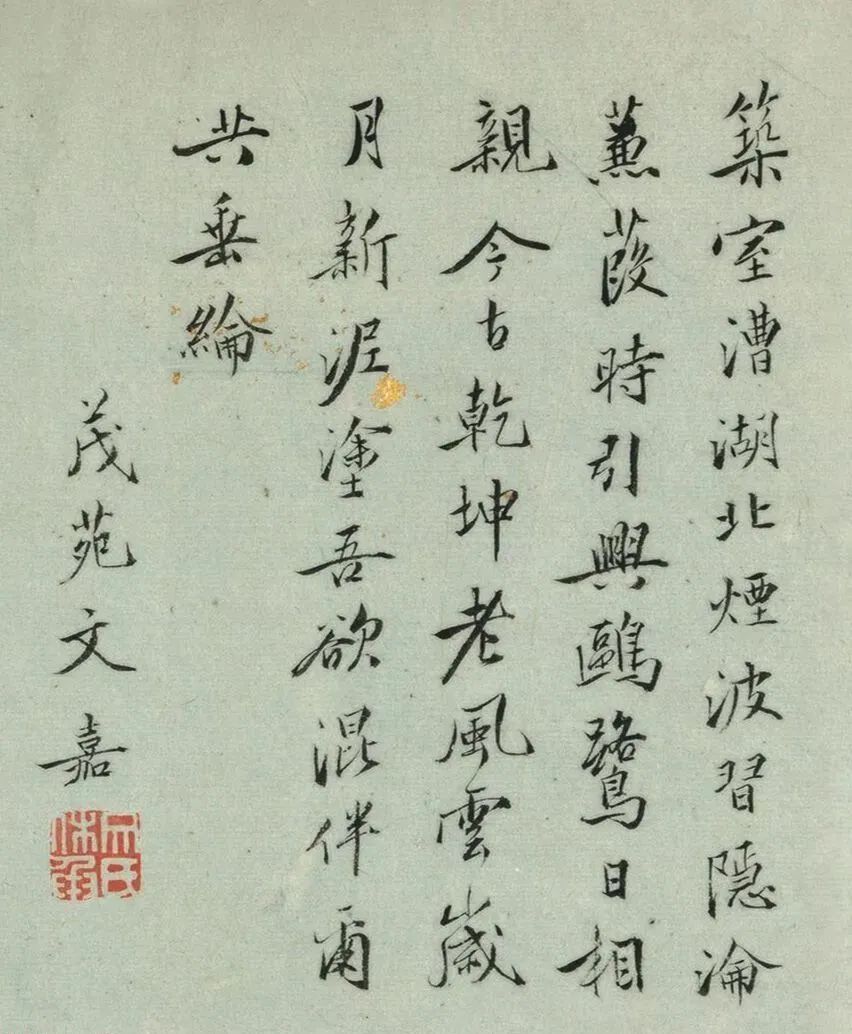 築室漕湖北煙波習隱淪
蒹葭時引興鷗鷺日相
親今古乾坤老風雲歲
月新泥塗吾欲混伴爾
共垂綸
茂苑文嘉